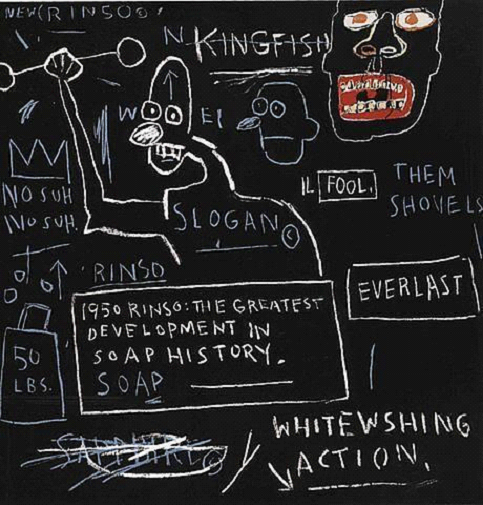 NEW(RINSO©)
N KINGFISH
W EI
NO SUH
NO SUH.
SLOGAN ©
FOOL.
THEM
SHOVELS
RINSO
1950 RINSO: THE GREATEST
DEVELOPMENT IN
SOAP HISTORY.
SOAP
EVERLAST
50
LBS.
SAPPHIRE ©
WHITEWSHING
ACTION.